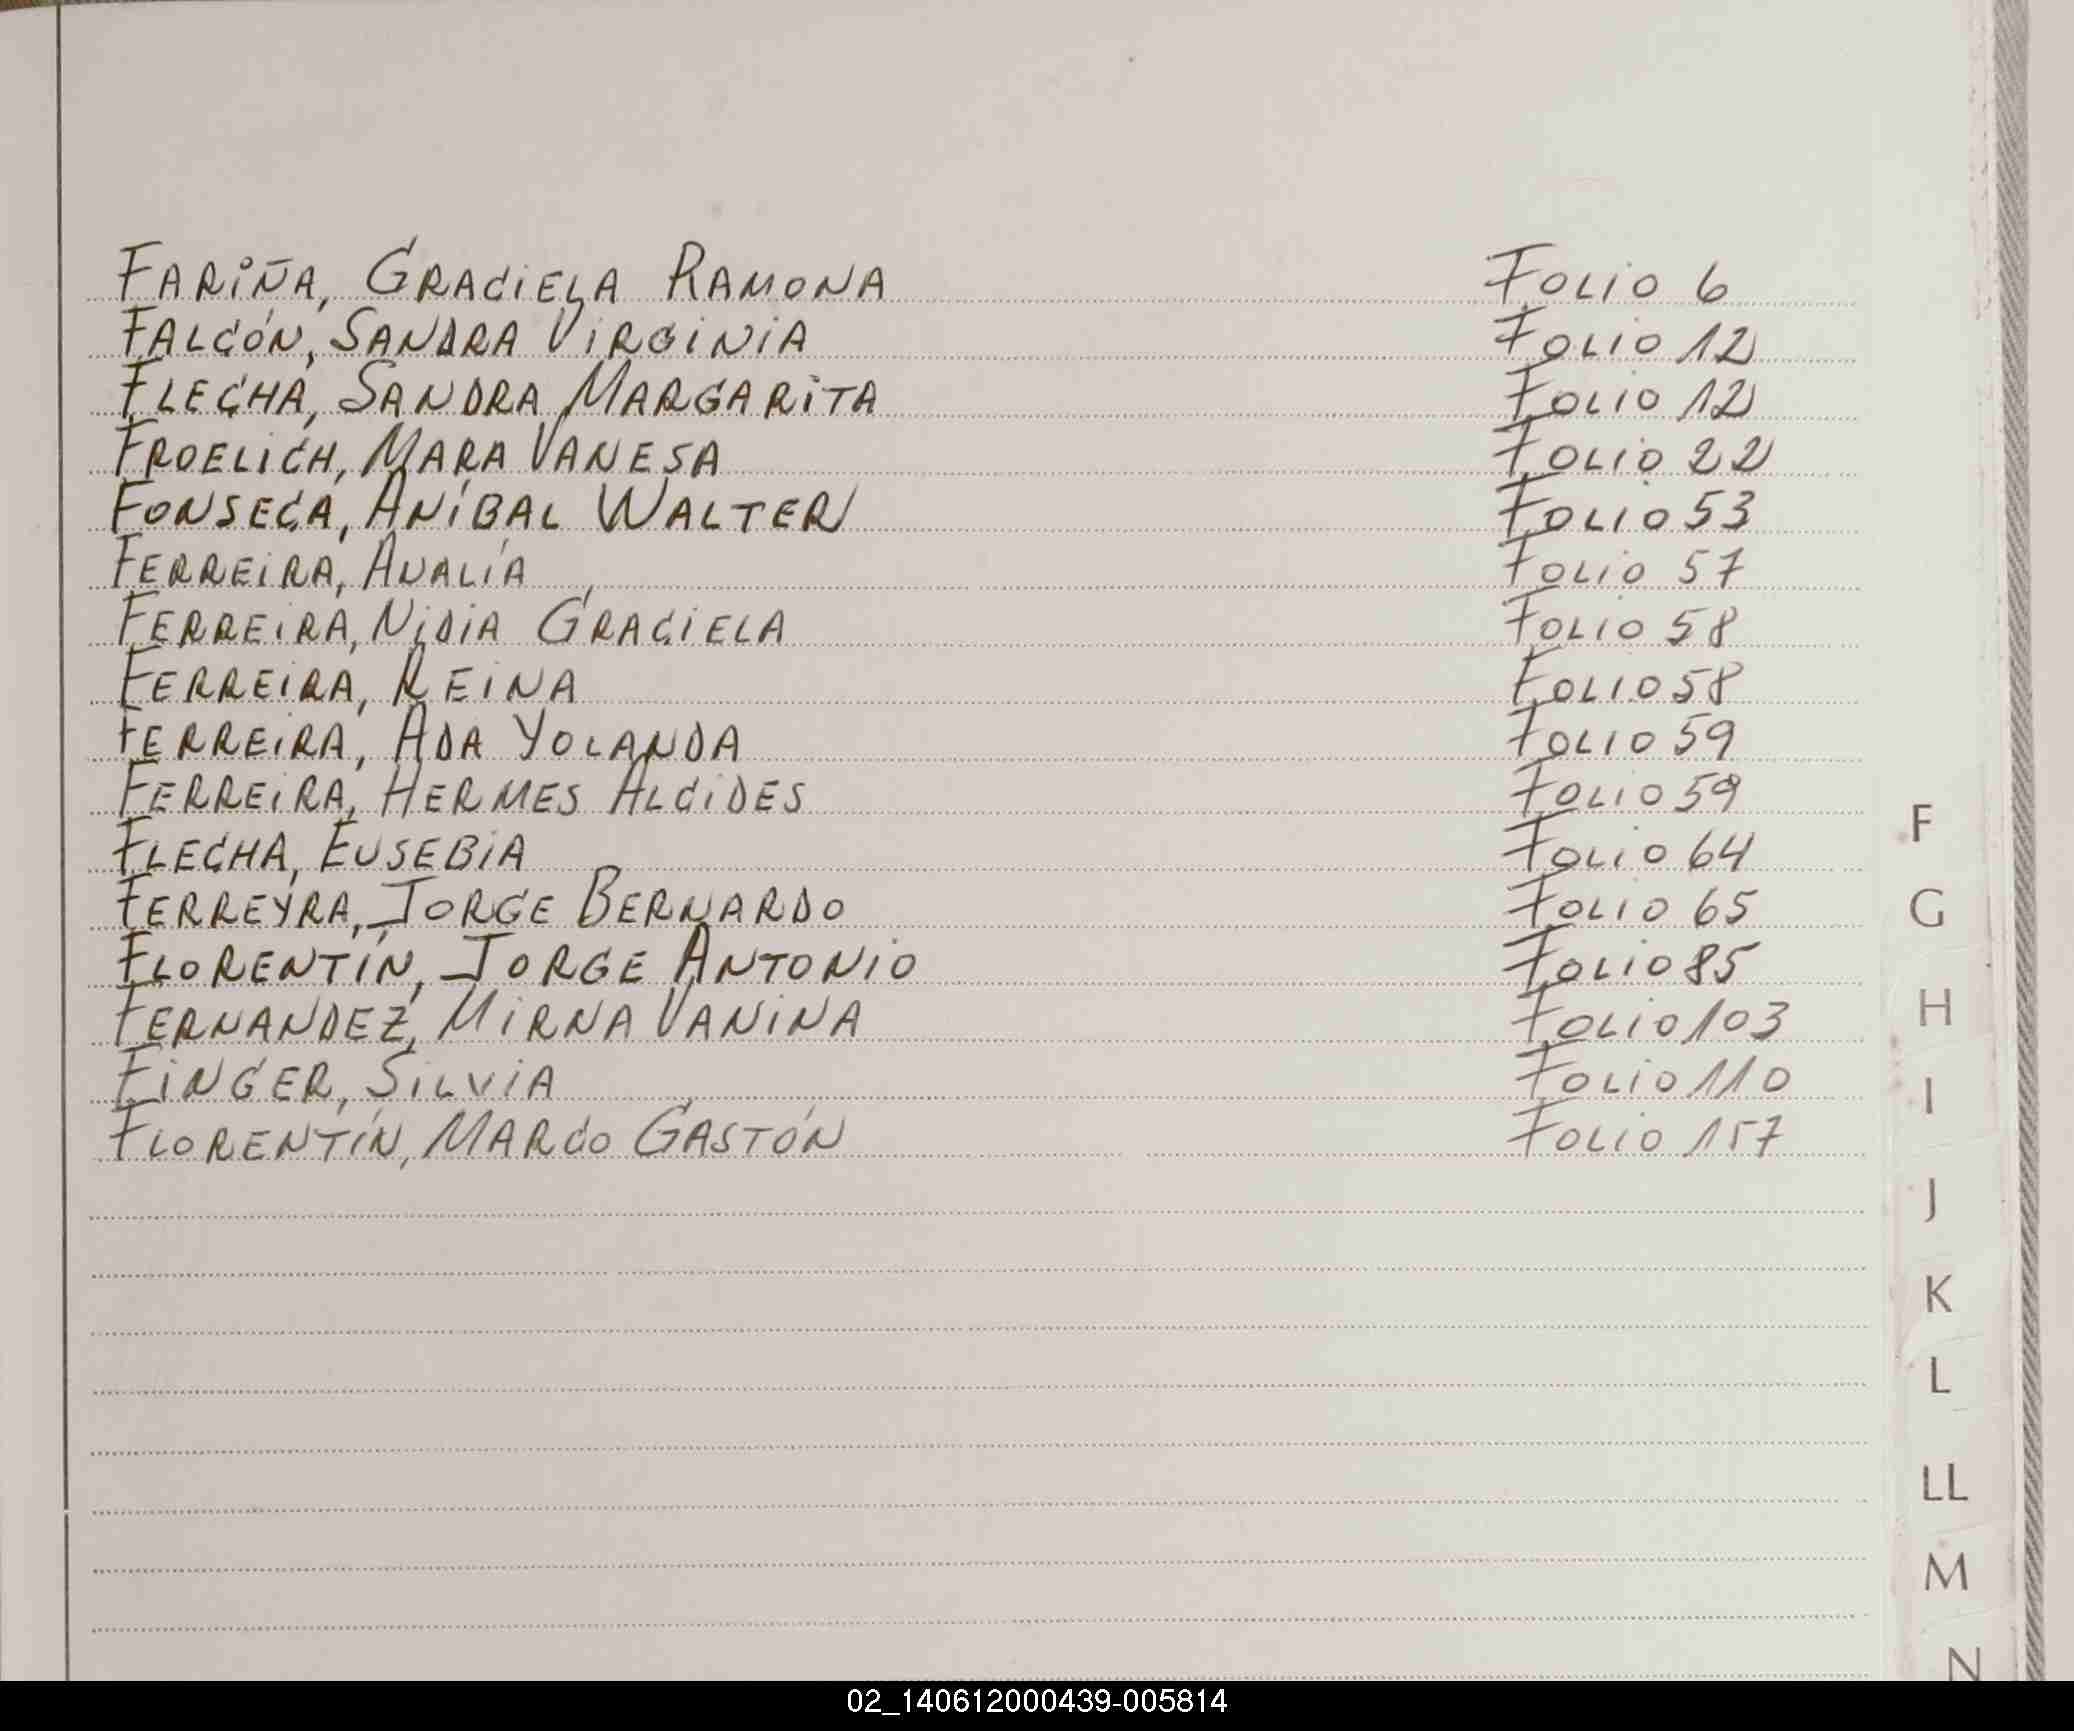 FARIÑA, GRACIELA RAMONA Folio 6
FALCÓN, SANDRA VIRGINIA Folio 12
FLECHA, SANDRA MARGARITA Folio 12
FROELICH, MARA VANESA Folio 22
FONSECA, ANÍBAL WALTER Folio 53
FERREIRA, ANALÍA Folio 57
FERREIRA, NIDIA GRACIELA Folio 58
FERREIRA, REINA Folio 58
FERREIRA, ADA YOLANDA Folio 59
FERREIRA, HERMES ALCIDES Folio 59
FLECHA, EUSEBIA Folio 64
FERREYRA, JORGE BERNARDO Folio 65
FLORENTÍN, JORGE ANTONIO Folio 85
FERNANDEZ, MIRNA VANINA Folio 103
FINGER, SILVIA Folio 110
FLORENTÍN, MARCO GASTÓN Folio 157
F
G
H
I
J
K
L
LL
M
N
02_140612000439-005814